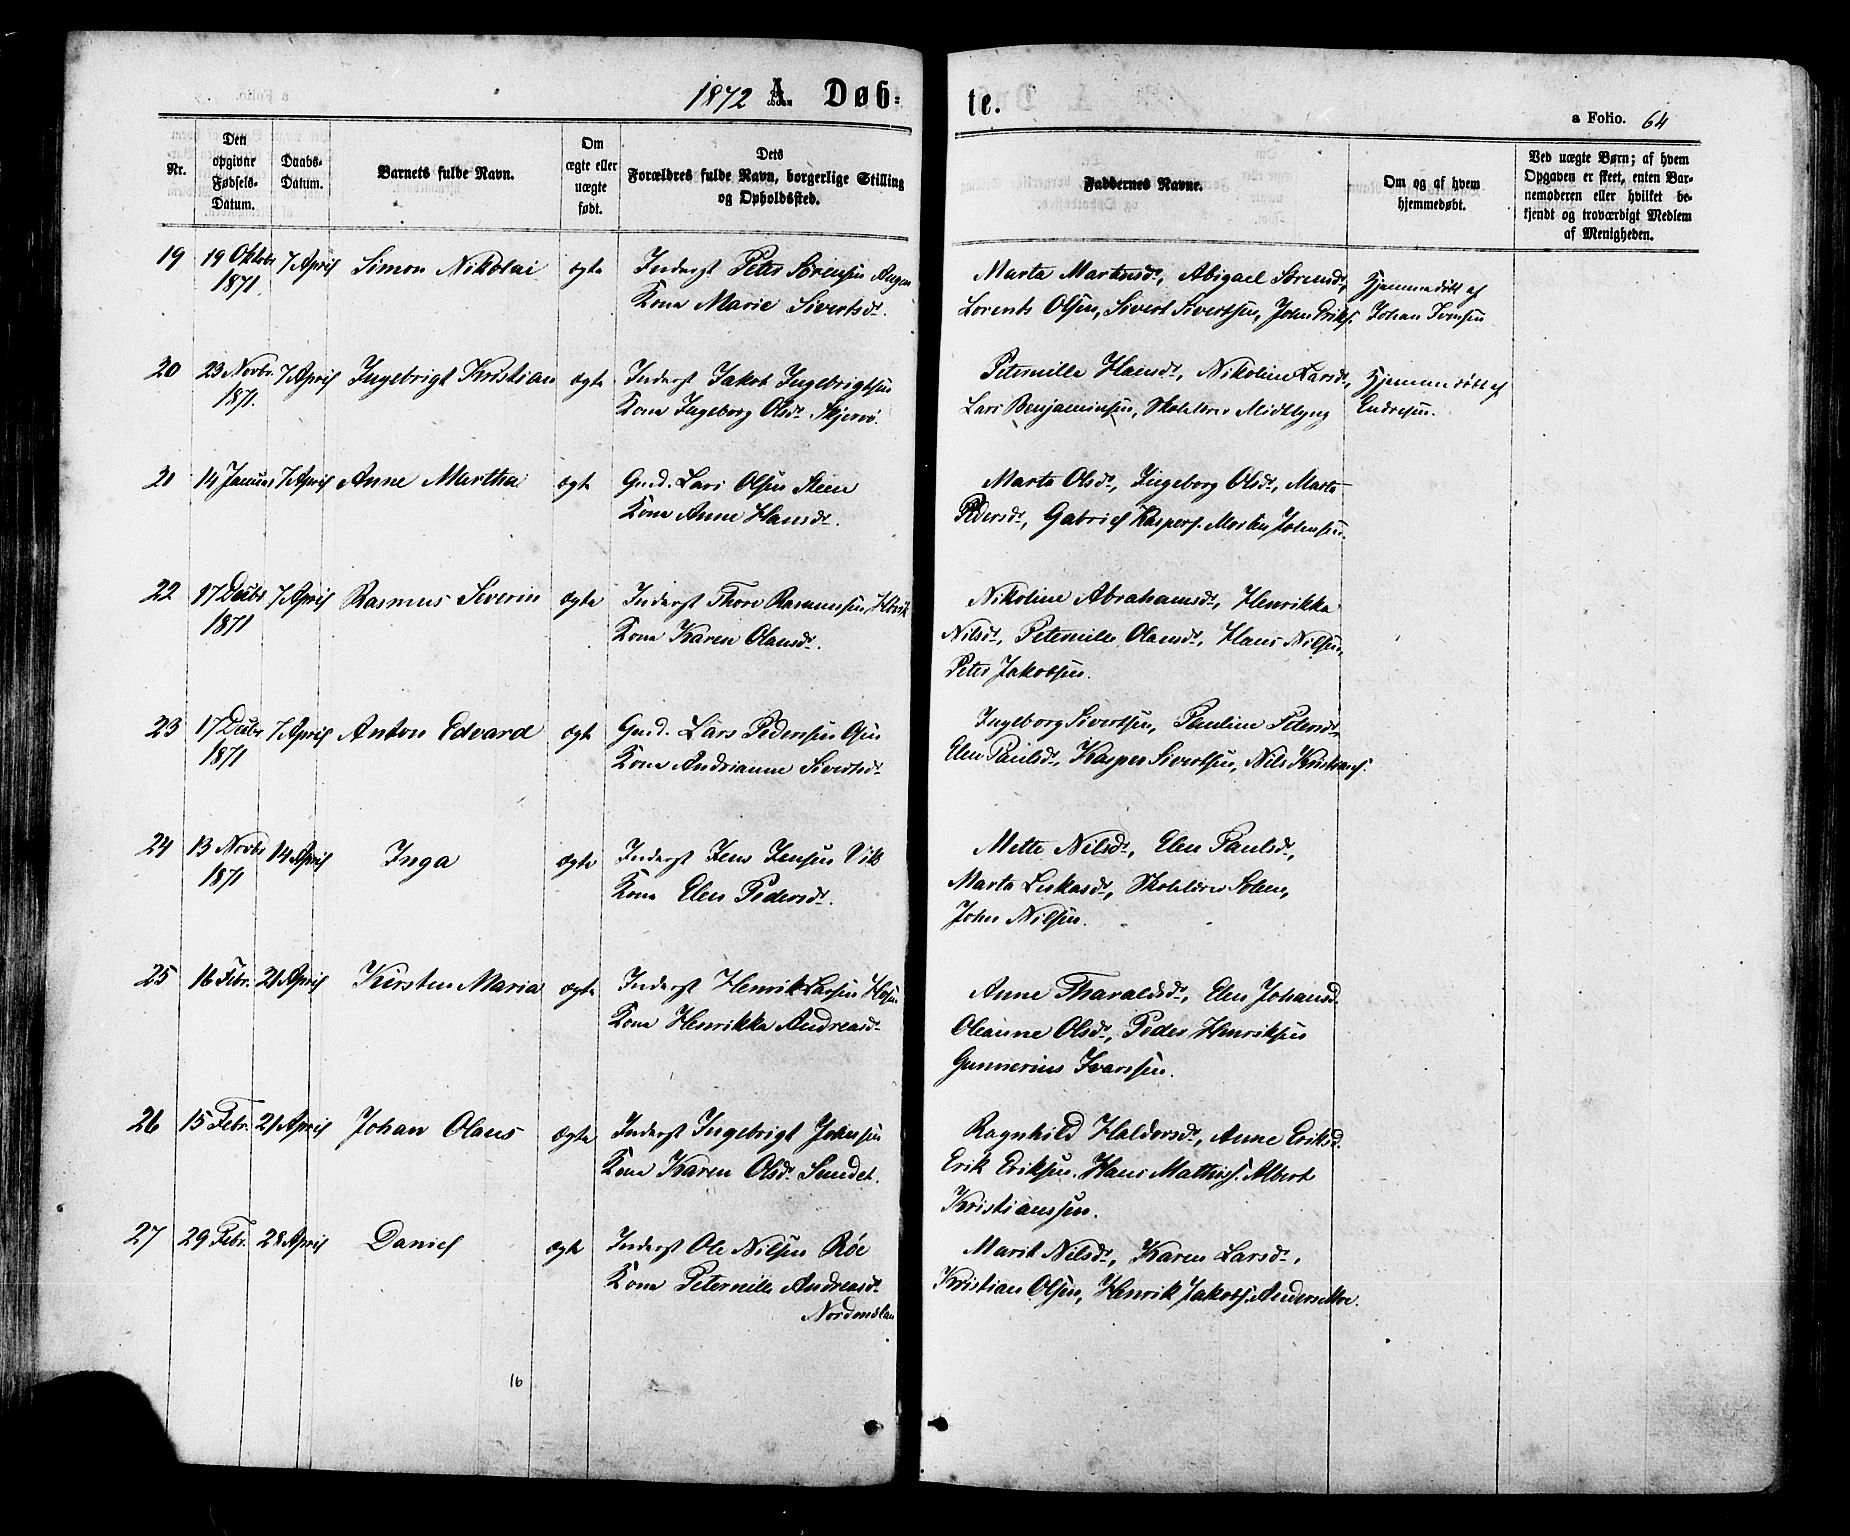 1872 A. Døb-
te.
a Folio. 64
Nr.
Den opgivne Fødsels-Datum.
Daabs-Datum.
Barnets fulde Navn.
Om ægte eller uægte født.
Dets Forældres fulde Navn, borgerlige Stilling og Opholdssted.
Faddernes Navne.
Om og af hvem hjemmedøbt.
Ved uægte Børn; af hvem Opgaven er skeet, enten Barnemoderen eller hvilket bekjendt og troværdigt Medlem af Menigheden.
19 19 Oktobr 7 April Simon Nikolai ægte Inderst Peter Sørensen
1871. Kone Marie Sivertsdr.
Marta Martinsdr, Abigael Sørensdr, Hjemmedøbt af
Lorents Olsen, Sivert Sivertsen, John Eriks. Johan Iversen
20 23 Novbr. 7 April Ingebrigt Kristian ægte Inderst Jakob Ingebrigtsen
1871. Kone Ingeborg Olsdr. Skjervø.
Peternille Hansdr, Nikoline Larsdr, Hjemmedøbt af
Lars Benjaminsen, Skolelærer Midtlyng Endresen.
21 14 Januar 7 April Anne Martha ægte Gmd. Lars Olsen Steen
Kone Anne Hansdr.
Marta Olsdr, Ingeborg Olsdr, Marta
Pedersdr, Gabriel Kaspers. Morten Johnsen.
22 17 Decbr 7 April Rasmus Severin ægte Inderst Thore Rasmussen
1871 Kone Karen Olausdr.
Nikoline Abrahamsdr, Henrikka
Nilsdr, Peternille Olausdr, Hans Nilsen,
Peter Jakobsen.
23 17 Decbr 7 April Anton Edvard ægte Gmd. Lars Pedersen
1871 Kone Andrianna Sivertsdr
Ingeborg Sivertsen, Pauline Petersdr,
Elen Paulsdr, Kasper Sivertsen, Nils Kristians.
24 13 Novbr 14 April Inga ægte Inderst Jens Jensen Vik
1871 Kone Elen Pedersdr.
Mette Nilsdr, Elen Paulsdr,
Marta Lukasdr, Skolelærer Solem,
John Nilsen.
25 16 Febr. 21 April Kirsten Maria ægte Inderst Henrik Larsen
Kone Henrikka Andreasdr
Anne Tharaldsdr, Elen Johansd.
Oleanne Olsdr, Peder Henriksen
Gunnerius Ivarsen.
26 15 Febr. 21 April Johan Olaus ægte Inderst Ingebrigt Johnsen
Kone Karen Olsdr. Sundet.
Ragnhild Haldorsdr, Anne Eriksd.
Erik Eriksen. Hans Mathias. Albert
Kristianssen.
27 29 Febr. 28 April Daniel ægte Inderst Ole Nilsen Røe
Kone Peternille Andreasdr
Marit Nilsdr, Karen Larsdr,
Kristian Olsen, Henrik Jakobs. Anders Moe.
16